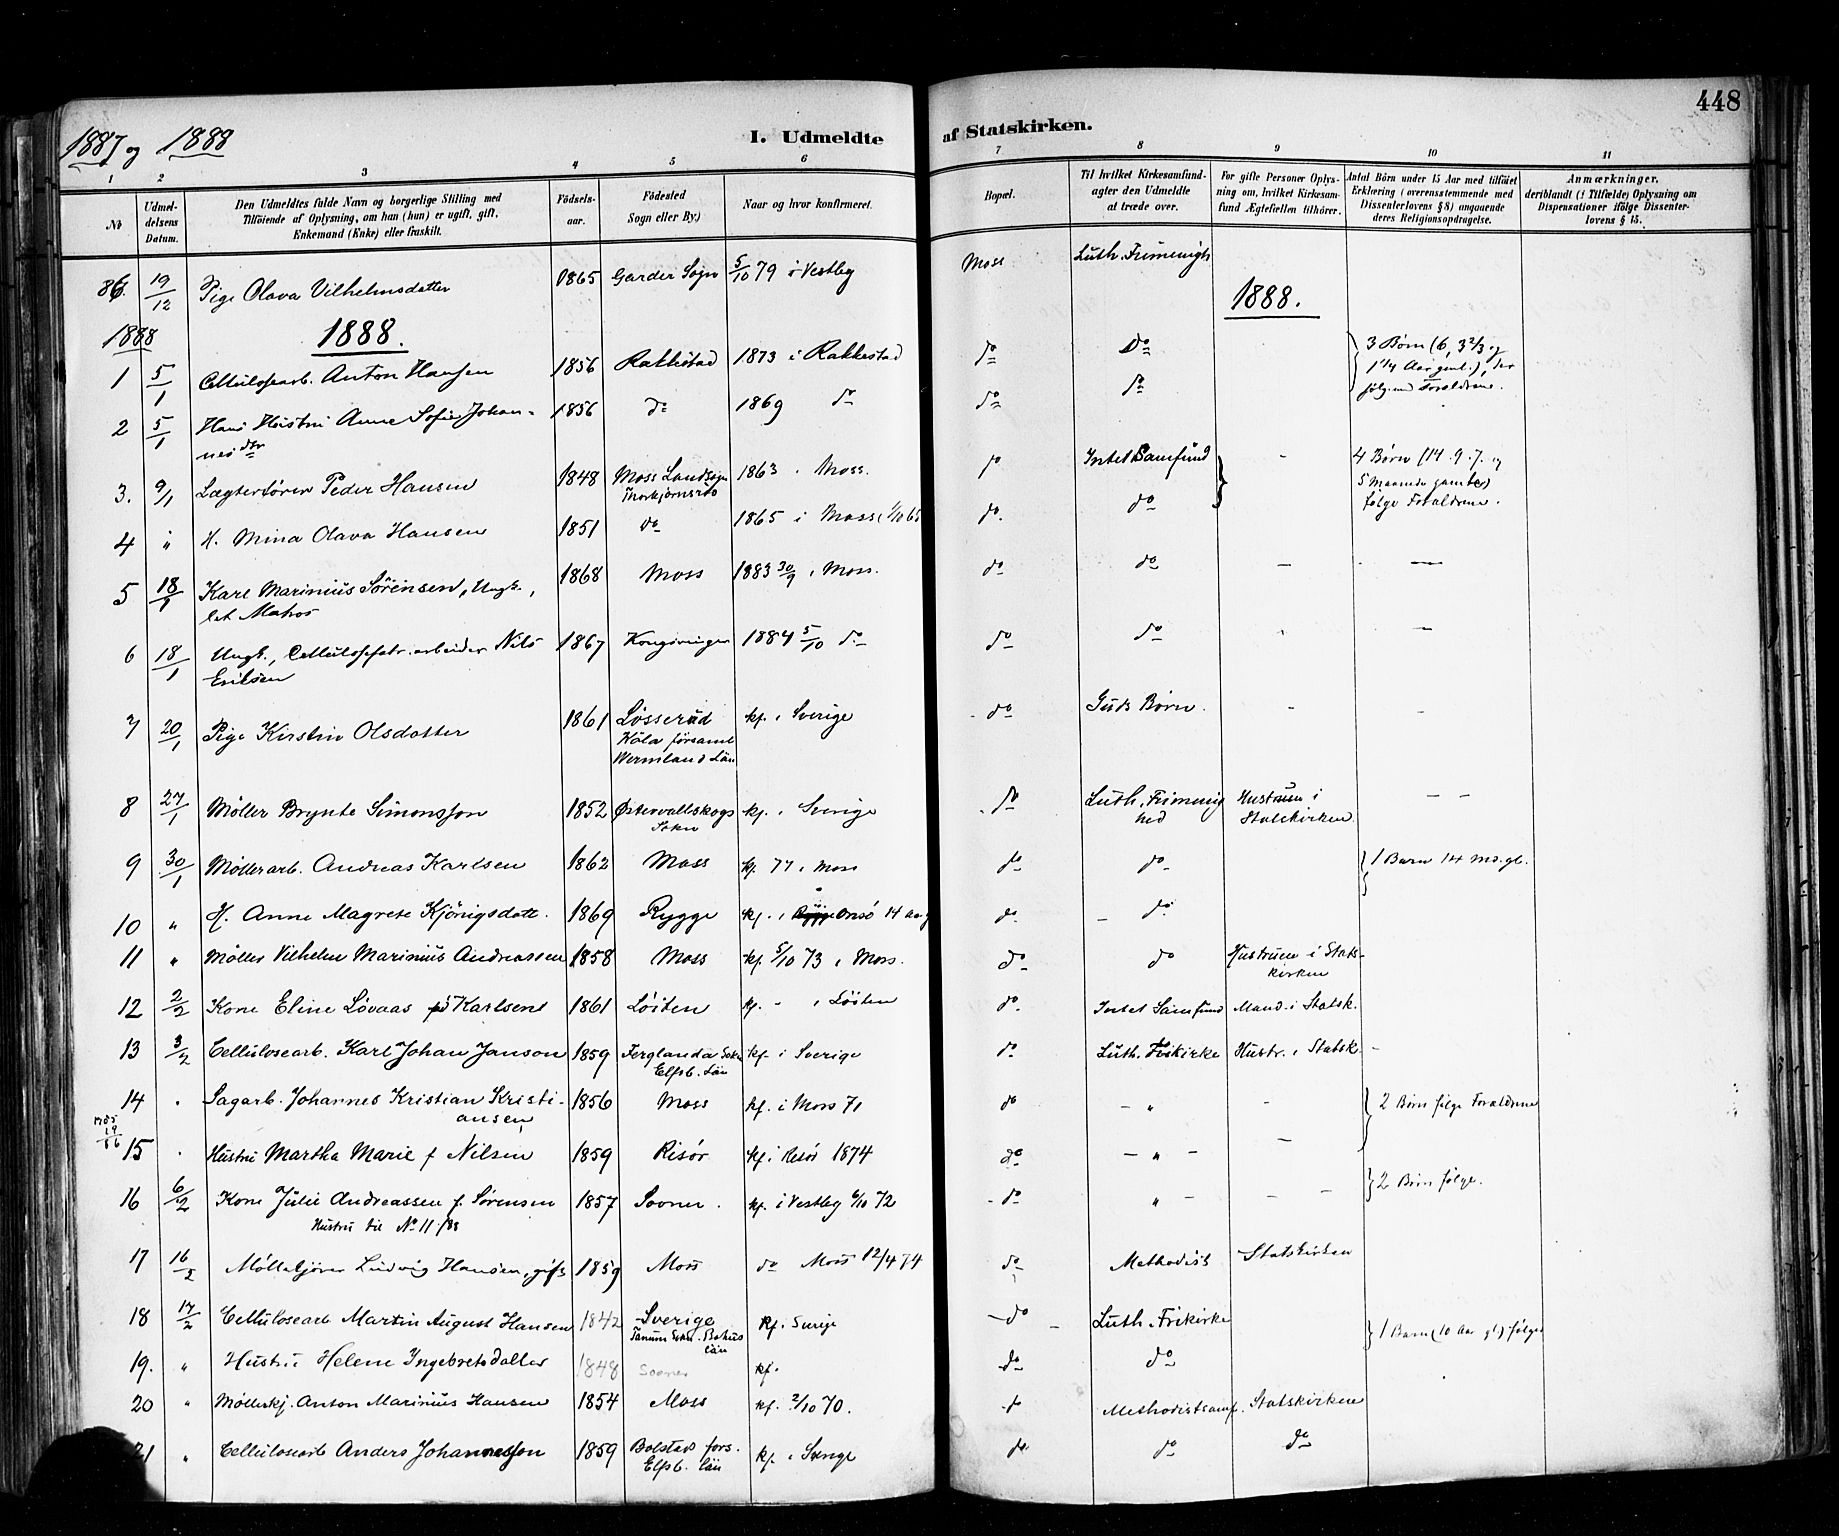 448
1887 og 1888
I. Udmeldte af Statskirken.
1 2 3 4 5 6 7 8 9 10 11
No
Udmel-
delsens
Datum.
Den Udmeldtes fulde Navn og borgerlige Stilling med
Tilföiende af Oplysning, om han (hun) er ugift, gift,
Enkemand (Enke) eller fraskilt.
Födsels-
aar.
Födested
Sogn eller By)
Naar og hvor konfirmeret.
Bopæl.
Til hvilket Kirkesamfund-
agter den Udmeldte
at træde over.
For gifte Personer Oplys-
ning om, hvilket Kirkesam-
fund Ægtefællen tilhörer.
Antal Börn under 15 Aar med tilföiet
Erklæring (overensstemmende med
Dissenterlovens § 8) angaaende
deres Religionsopdragelse.
Anmærkninger,
deriblandt (i Tilfælde) Oplysning om
Dispensationer ifölge Dissenter-
lovens § 15.
86. 19/12 Pige Olava Vilhelmsdatter 1865 Garder Sogn 5/10 79 i Vestby Moss Luth. Frimenigh
1888 1888. 1888.
1 5/1 Cellulosearb. Anton Hansen 1856 Rakkestad 1873 i Rakkestad do do 3 Børn (6, 3 2/3 og
1 1/4 Aar gml.), der
følg. med Forældrene.
2 5/1 Hans Hustru Anne Sofie Johan-
nesdtr 1856 do 1869 do do do
3. 9/1 Lægterfører Peder Hansen 1848 Moss Landsogn
Thorbjørnsrød 1863 i Moss. do Intet Samfund - 4 Børn (14. 9. 7. og
5 Maaneder gamle)
følge Forældrene.
4 " H. Mina Olava Hansen 1851 do 1865 i Moss (1/10 65 do. do
5 18/1 Karl Marinius Sörensen, Ungk.,
let Matros 1868 Moss 1883 30/9 i Moss. do do - -
6 18/1 Ungk., Cellulosefabr. arbeider Nils
Eriksen 1867 Kongsvinger 1884 5/10 do do do - -
7 20/1 Pige Kirstin Olsdatter 1861 Lösserud
Köla församl
Wermland Län kf. i Sverige do Guds Børn. - -
8 27/1 Møller Brynte Simonsson 1852 Østervallskogs
Sokn kf. i Sverige do Luth. Frimenig
hed Hustruen i
Statskirken - -
9 30/1 Møllerarb. Andreas Karlsen 1862 Moss kf. 77 i Moss do do 1 Barn 14 md. gl.
10 " H. Anne Magrete Kjönigsdatt. 1869 Rygge kf. i Onsö 14 Aar g do. do
11 " Møller Vilhelm Marinius Andreassen 1858 Moss kf. 5/10 73 i Moss. do do Hustruen i Stats-
kirken
12 2/2 Kone Eline Lövaas f. Karlsen 1861 Löiten kf. - i Löiten do. Intet Samfund Mand. i Statsk.
13 3/2 Cellulosearb. Karl Johan Janson 1859 Ferglanda Sokn
Elfsb. Län kf. i Sverige do Luth. Frikirke Hustr. i Statsk. -
14 " Sagarb. Johannes Kristian Kristi-
ansen 1856 Moss kf. i Moss 71 do - " - 2 Børn følge Forældrene
15 " Hustru Martha Marie f Nilsen 1859 Risör kf. i Risör 1874 do - " - -
16 6/2 Kone Julie Andreassen f. Sörensen
Hustru til No 11/88 1857 Sooner. kf. i Vestby 6/10 72 do " - - - 2 Børn følge.
17 16/2 Möllekjörer Ludvig Hansen, gift 1859 Moss do Moss 12/4 74 do Methodist Statskirken
18 17/2 Cellulosearb. Martin August Hansen 1842 Sverige
Tanum Sokn. Bohus
län kf. i Sverige do Luth. Frikirke 1 Barn (10 Aar gl) følge
19. " Hustru Helene Ingebretsdatter 1848 Sooner kf. do do
20 " Møllekj. Anton Marinius Hansen 1854 Moss kf. 2/10 70. do Methodistsamf. Statskirken
21 " Cellulosearb Anders Johannesson 1859 Bolstad fors.
Elfsb. län kf. i Sverige do do do